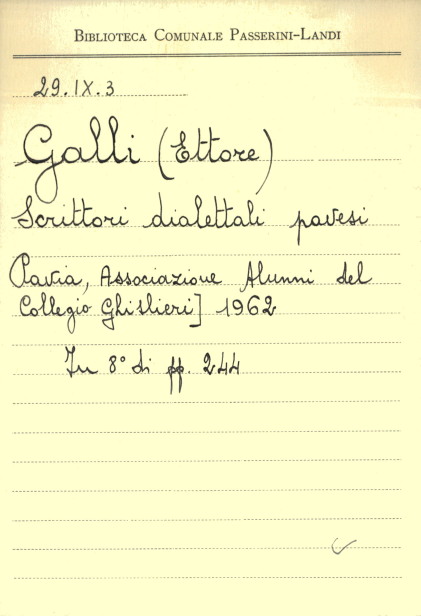 BIBLIOTECA COMUNALE PASSERINI-LANDI
29.IX.3
Galli (Ettore)
Scrittori dialettali pavesi
Pavia, Associazione Alunni del
Collegio Ghislieri] 1962
In 8° di pp. 244